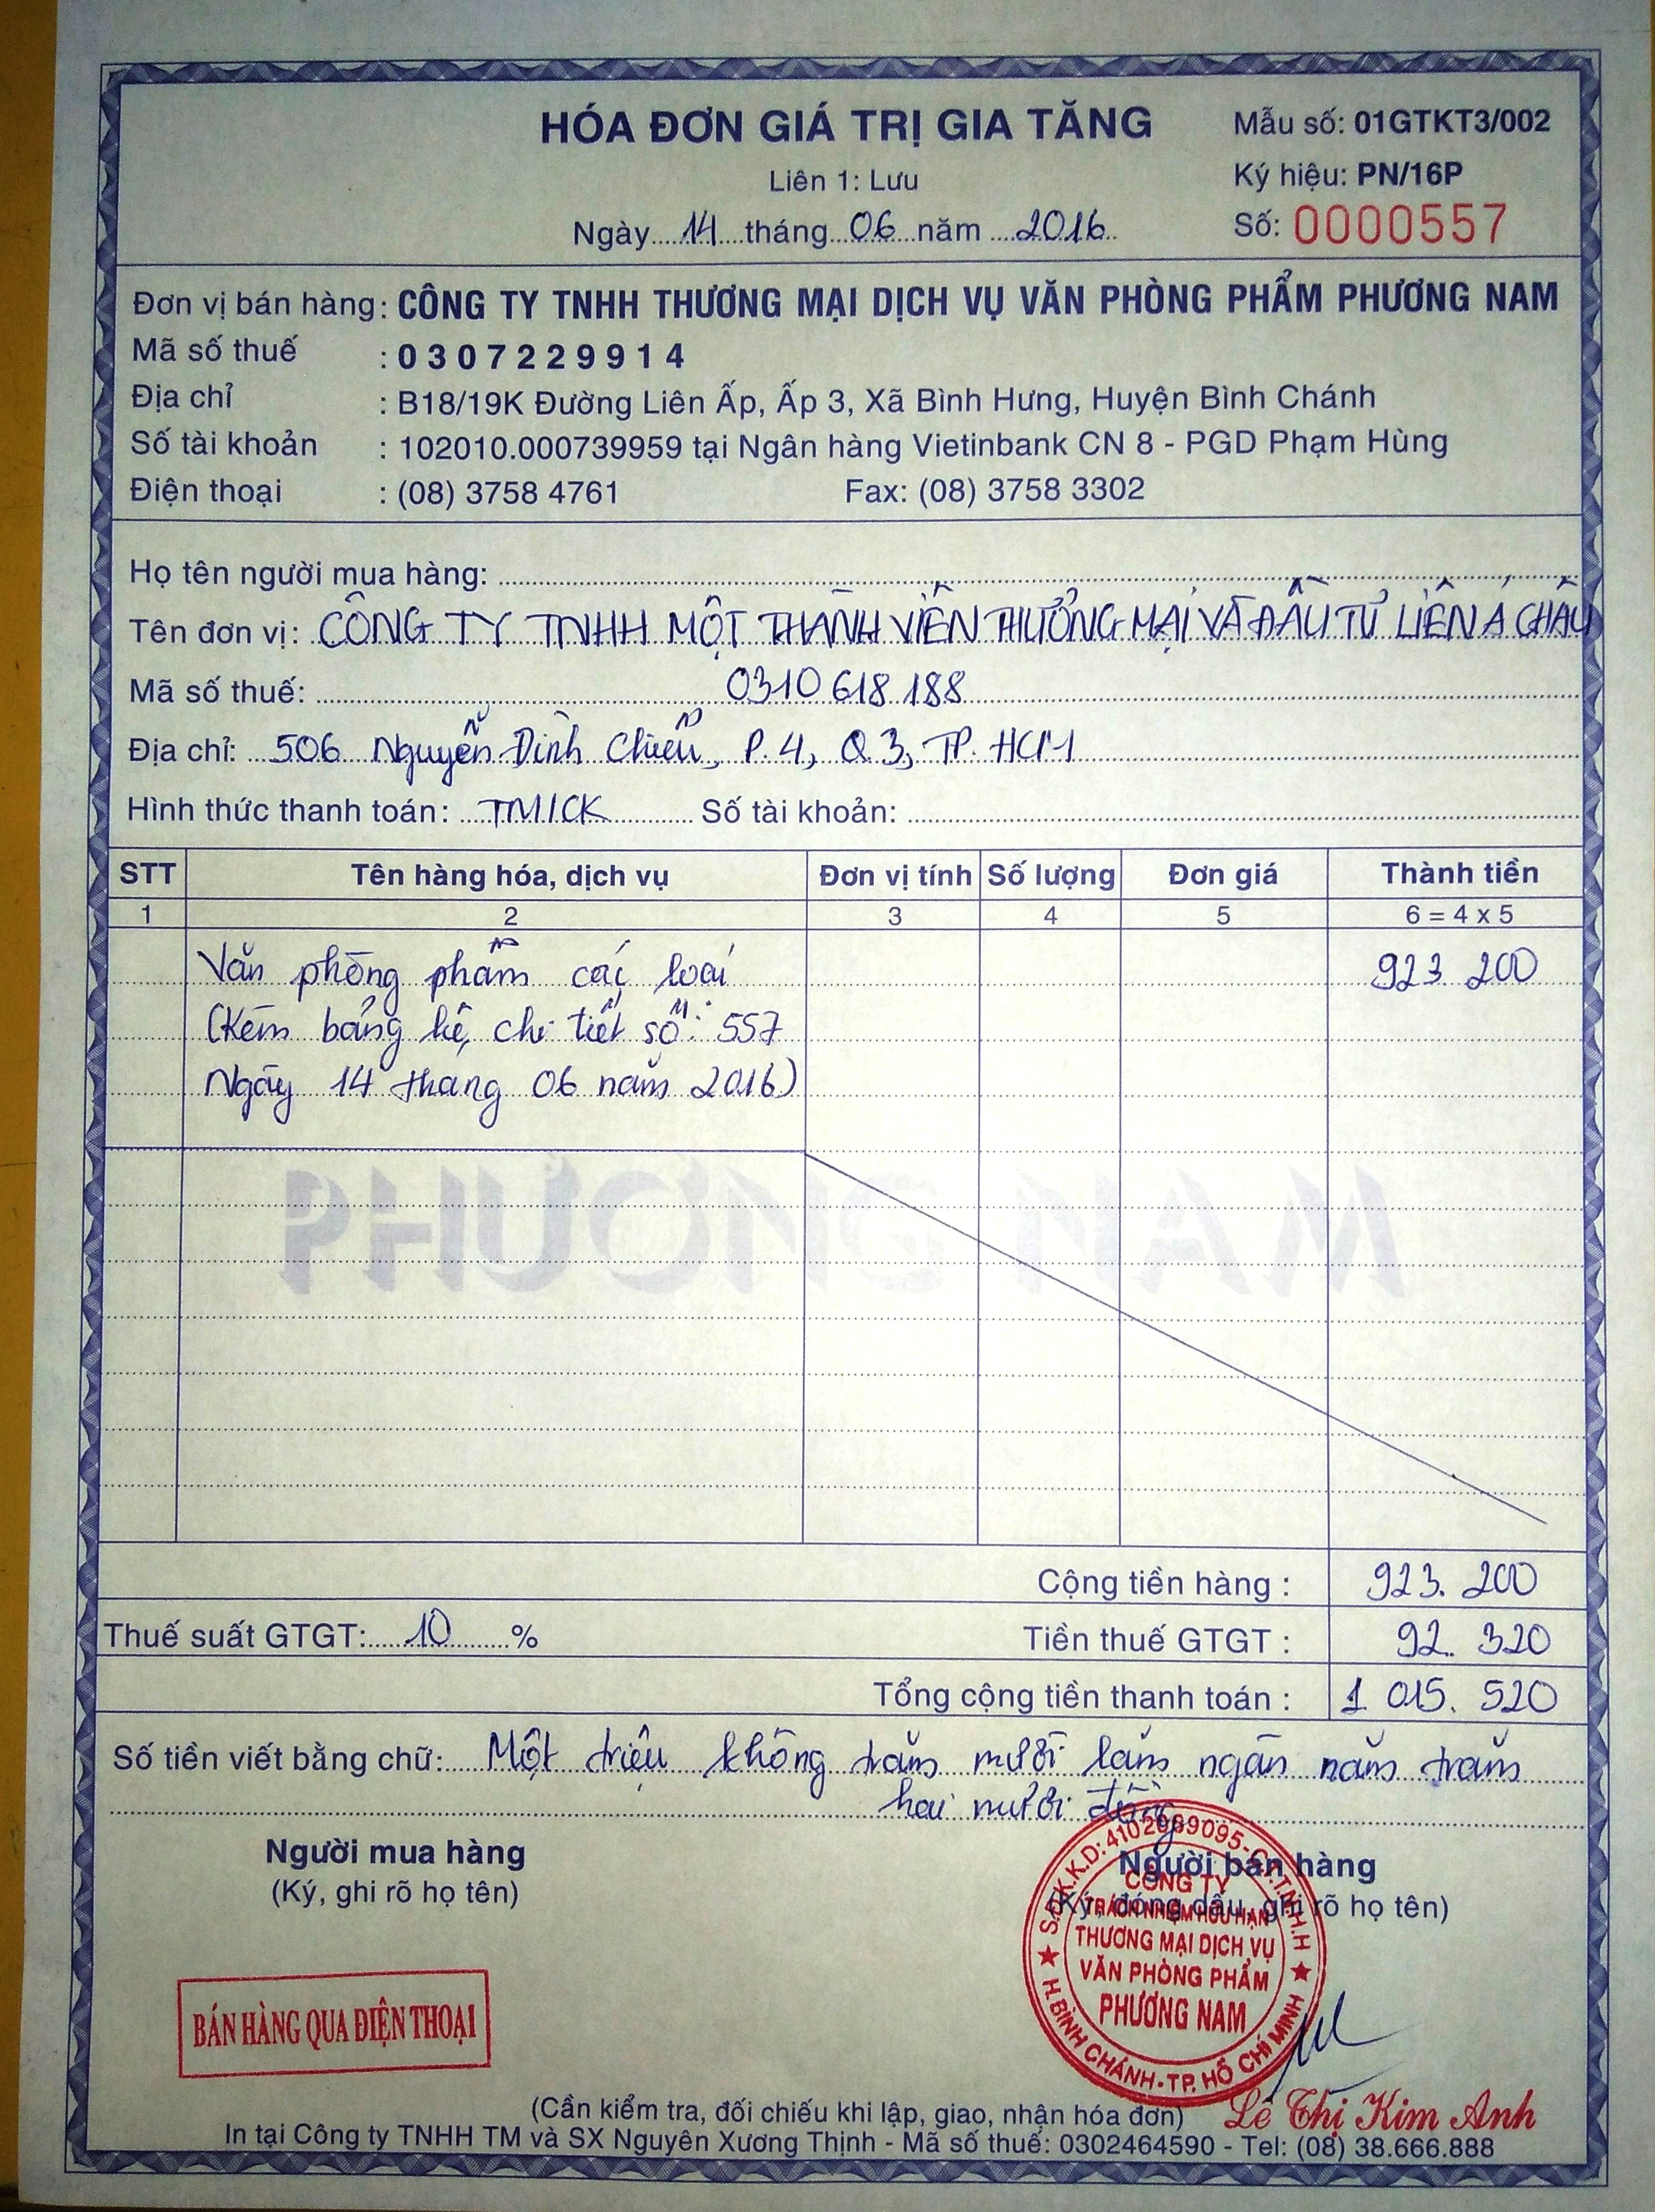 HÓA ĐƠN GIÁ TRỊ GIA TĂNG
Mẫu số: 01GTKT3/002
Liên 1: Lưu
Ký hiệu: PN/16P
Ngày 14 tháng 06 năm 2016
Số: 0000557
Đơn vị bán hàng: CÔNG TY TNHH THƯƠNG MẠI DỊCH VỤ VĂN PHÒNG PHẨM PHƯƠNG NAM
Mã số thuế : 0307229914
Địa chỉ : B18/19K Đường Liên Ấp, Ấp 3, Xã Bình Hưng, Huyện Bình Chánh
Số tài khoản : 102010.000739959 tại Ngân hàng Vietinbank CN 8 - PGD Phạm Hùng
Điện thoại : (08) 3758 4761 Fax: (08) 3758 3302
Họ tên người mua hàng:
Tên đơn vị: CÔNG TY TNHH MỘT THÀNH VIÊN THƯƠNG MẠI VÀ ĐẦU TƯ LIÊN Á CHÂU
Mã số thuế: 0310 618 188
Địa chỉ: 506 Nguyễn Đình Chiểu, P. 4, Q 3, TP. HCM
Hình thức thanh toán: TM/CK Số tài khoản:
STT Tên hàng hóa, dịch vụ Đơn vị tính Số lượng Đơn giá Thành tiền
1 2 3 4 5 6 = 4 x 5
Văn phòng phẩm các loại 923.200
(Kèm bảng kê chi tiết số: 557
Ngày 14 tháng 06 năm 2016)
PHƯƠNG NAM
Cộng tiền hàng : 923.200
Thuế suất GTGT: 10 % Tiền thuế GTGT : 92.320
Tổng cộng tiền thanh toán : 1.015.520
Số tiền viết bằng chữ: Một triệu không trăm mười lăm ngàn năm trăm
hai mươi đồng
Người mua hàng
(Ký, ghi rõ họ tên)
Người bán hàng
(Ký, đóng dấu, ghi rõ họ tên)
S.Đ.K.K.D: 4102069095-C.T.T.N.H.H
CÔNG TY
TRÁCH NHIỆM HỮU HẠN
THƯƠNG MẠI DỊCH VỤ
VĂN PHÒNG PHẨM
PHƯƠNG NAM
H. BÌNH CHÁNH - TP. HỒ CHÍ MINH
BÁN HÀNG QUA ĐIỆN THOẠI
(Cần kiểm tra, đối chiếu khi lập, giao, nhận hóa đơn)
Lê Thị Kim Anh
In tại Công ty TNHH TM và SX Nguyên Xương Thịnh - Mã số thuế: 0302464590 - Tel: (08) 38.666.888